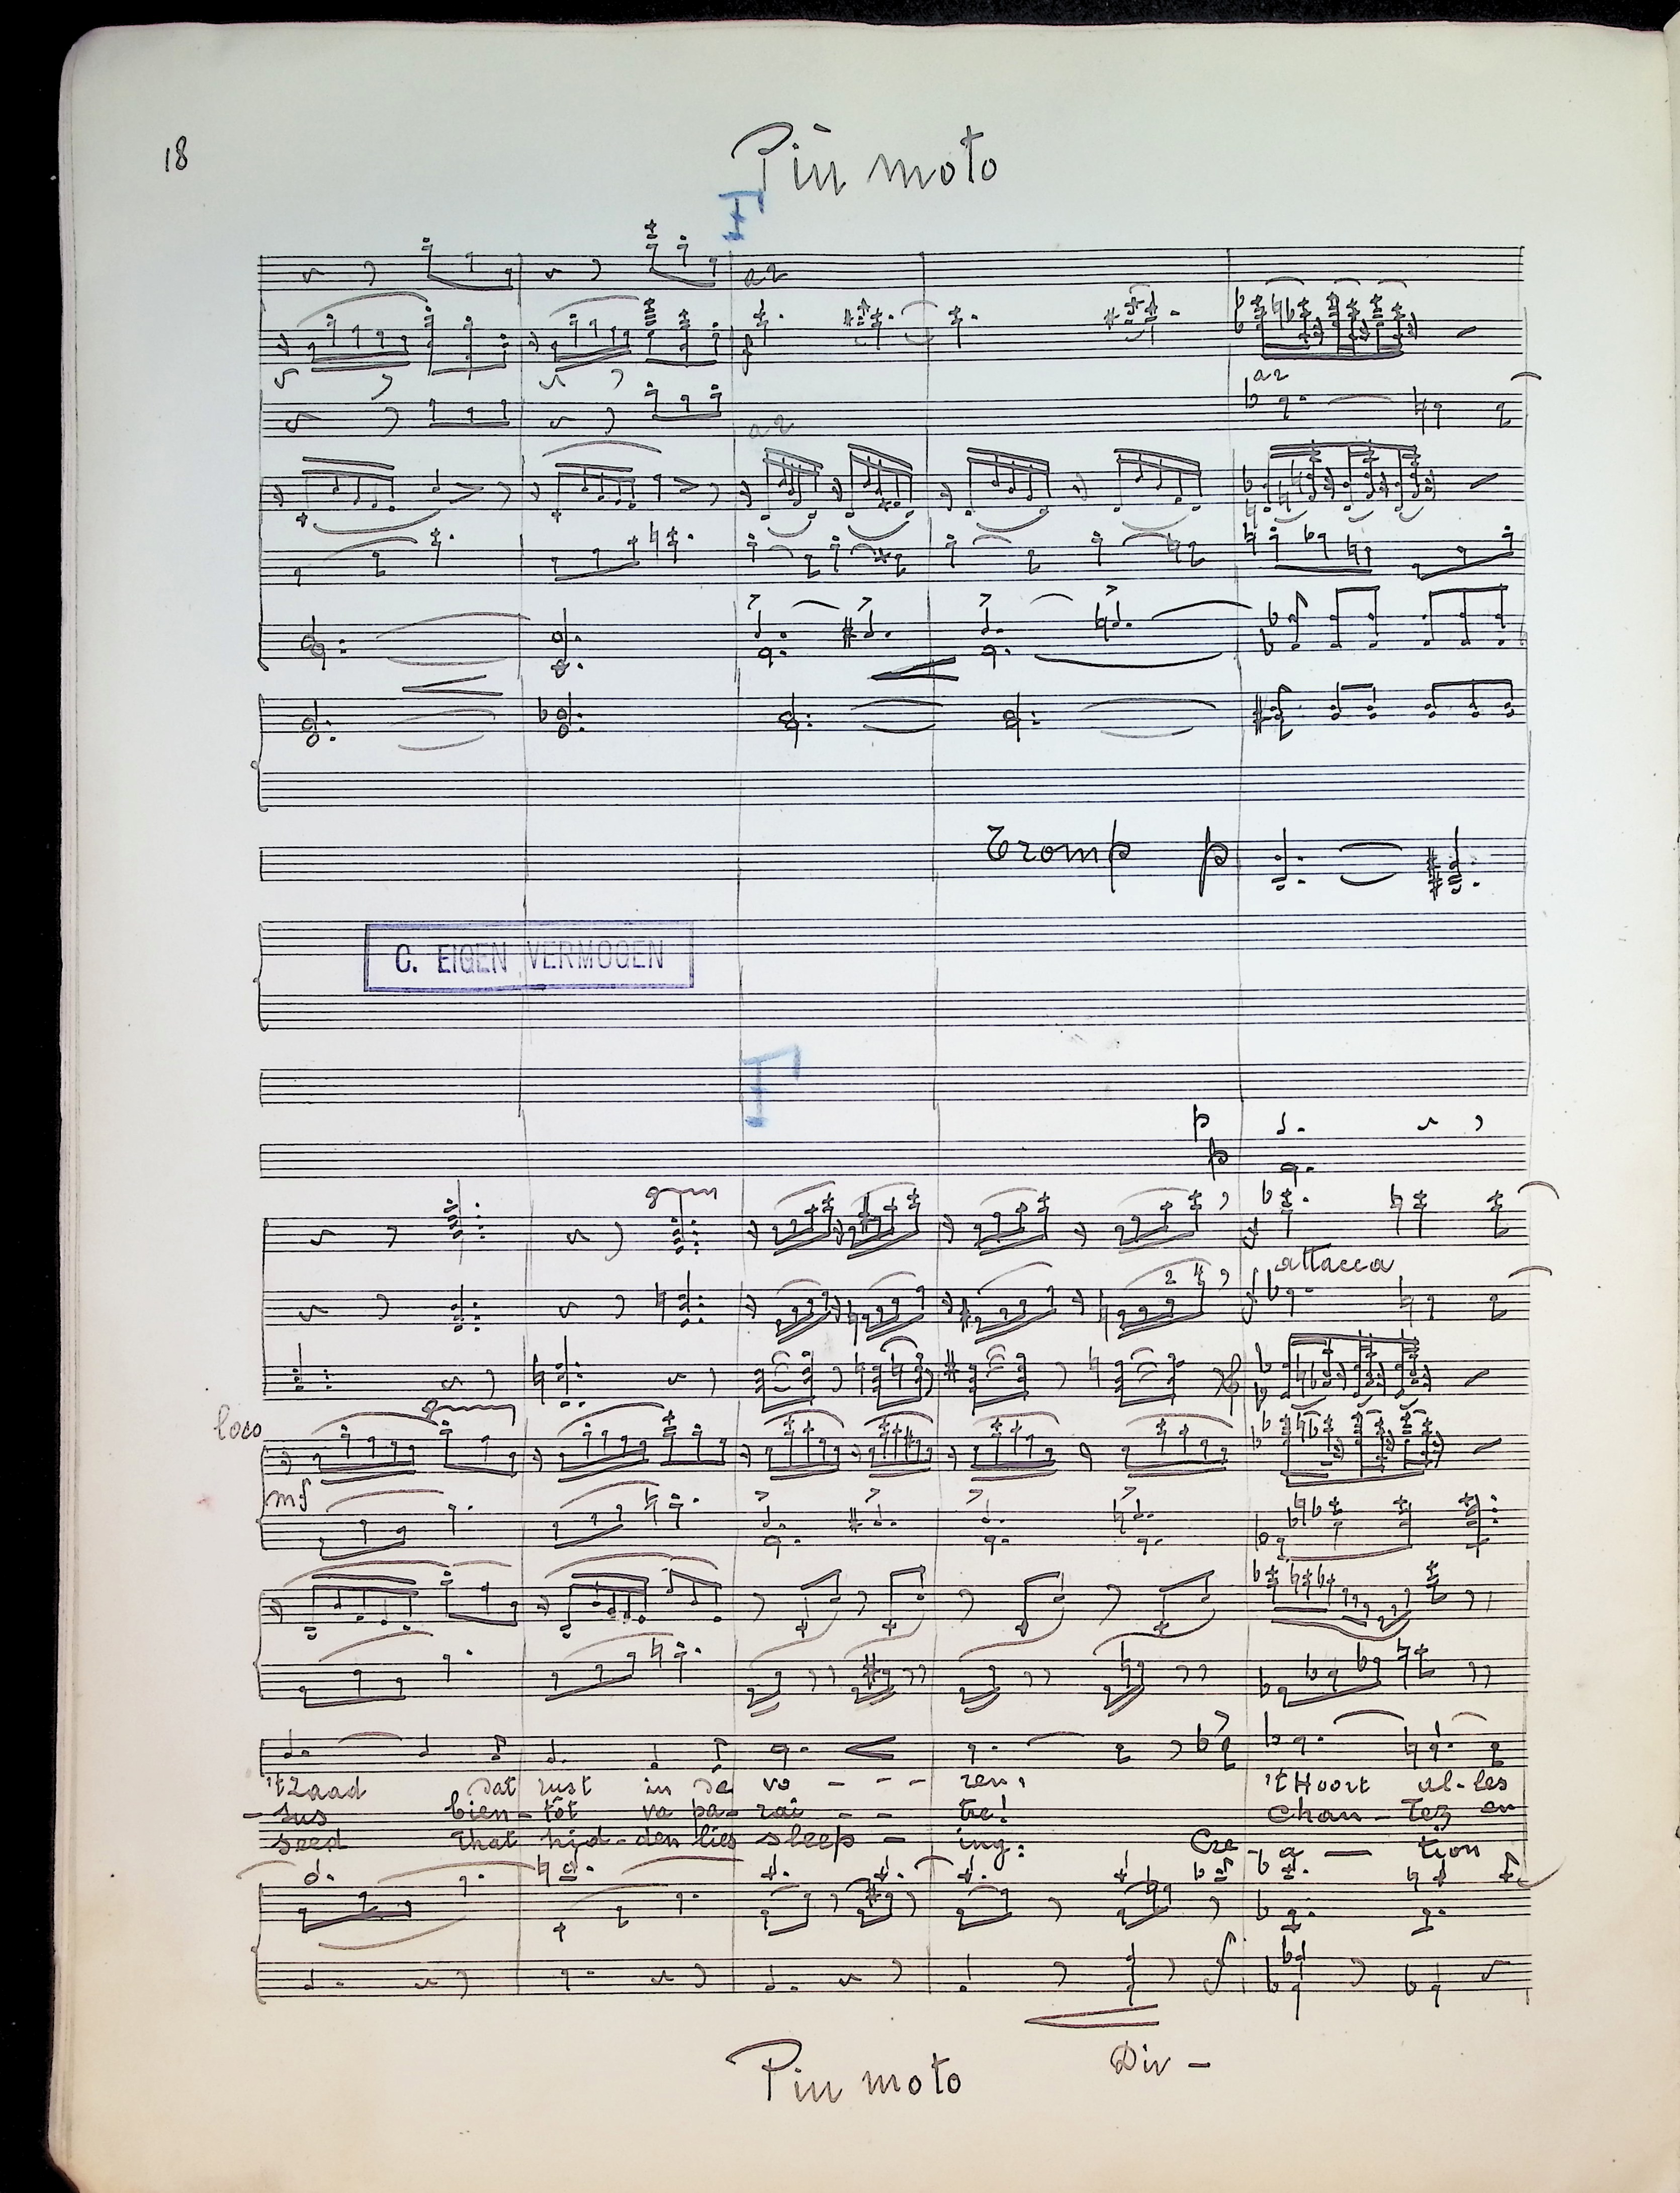 18
Più moto
F
a2
a2
a2
Tromp p
C. EIGEN VERMOGEN
F
p
p
attacca
loco
mf
't Zaad dat rust in de vo - - - ren, 't Hoort al - les
- sus bien - tôt va pa - raî - - tre! Chan - tez en
seed that hid - den lies sleep - ing: Cre - a - tion
Più moto
Div -